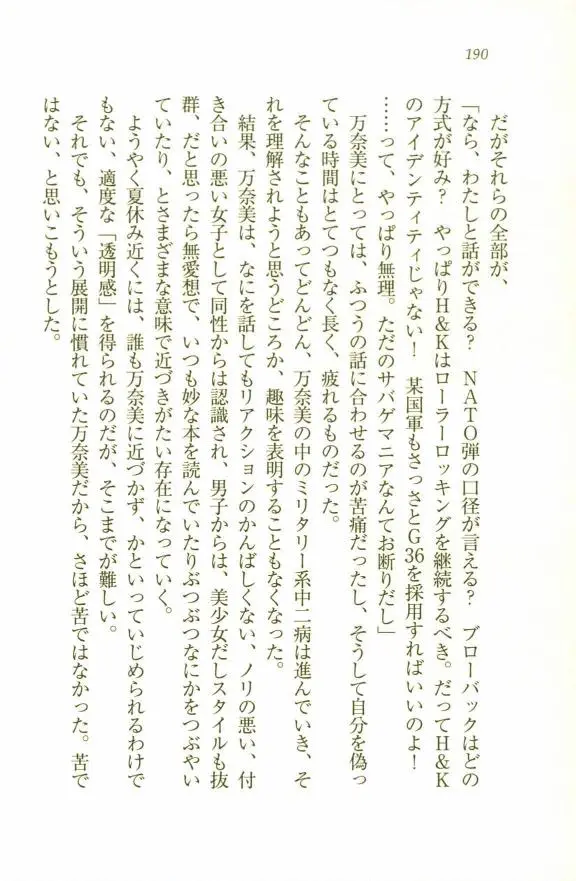 190
だがそれらの全部が、
「なら、わたしと話ができる？　NATO弾の口径が言える？　ブローバックはどの
方式が好み？　やっぱりH&Kはローラーロッキングを継続するべき。だってH&K
のアイデンティティじゃない！　某国軍もさっさとG36を採用すればいいのよ！
……って、やっぱり無理。ただのサバゲマニアなんてお断りだし」
万奈美にとっては、ふつうの話に合わせるのが苦痛だったし、そうして自分を偽っ
ている時間はとてつもなく長く、疲れるものだった。
そんなこともあってどんどん、万奈美の中のミリタリー系中二病は進んでいき、そ
れを理解されようと思うどころか、趣味を表明することもなくなった。
結果、万奈美は、なにを話してもリアクションのかんばしくない、ノリの悪い、付
き合いの悪い女子として同性からは認識され、男子からは、美少女だしスタイルも抜
群、だと思ったら無愛想で、いつも妙な本を読んでいたりぶつぶつなにかをつぶやい
ていたり、とさまざまな意味で近づきがたい存在になっていく。
ようやく夏休み近くには、誰も万奈美に近づかず、かといっていじめられるわけで
もない、適度な「透明感」を得られるのだが、そこまでが難しい。
それでも、そういう展開に慣れていた万奈美だから、さほど苦ではなかった。苦で
はない、と思いこもうとした。